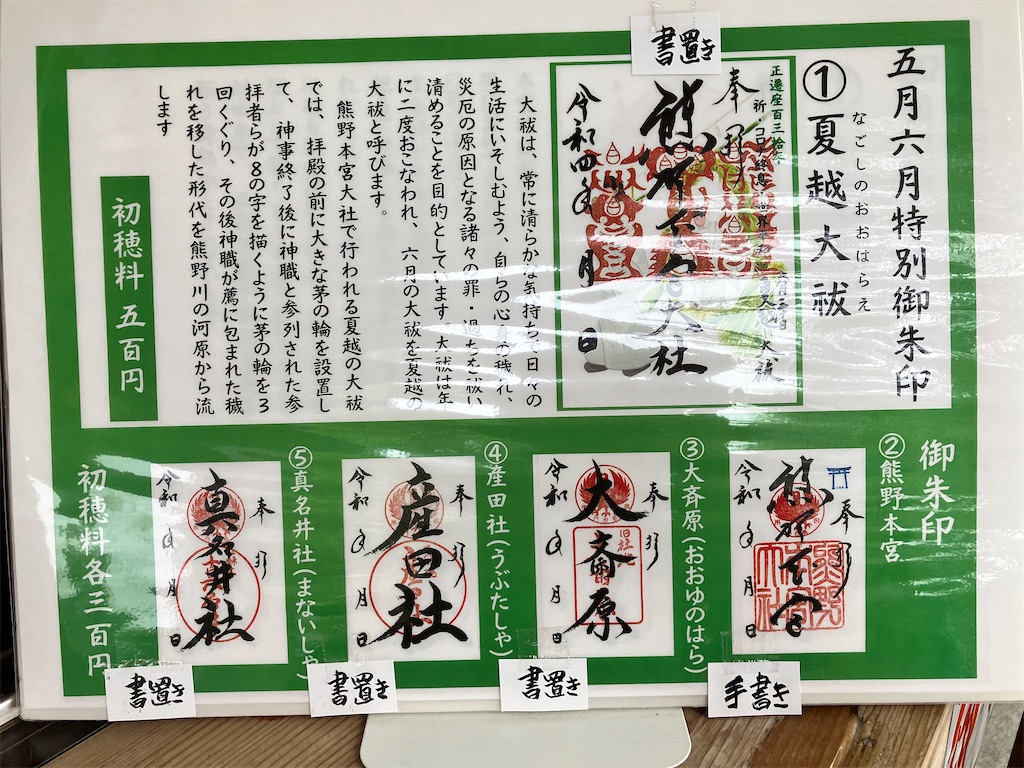 五月六月特別御朱印
なごしのおおはらえ
①夏越大祓
書置き
正遷座百三拾年
奉
熊野本宮大社
大祓
令和四年 月 日
大祓は、常に清らかな気持ち、日々の
生活にいそしむよう、自らの心身の穢れ、
災厄の原因となる諸々の罪・過ちを祓い
清めることを目的としています。大祓は年
に二度おこなわれ、六月の大祓を夏越の
大祓と呼びます。
熊野本宮大社で行われる夏越の大祓
では、拝殿の前に大きな茅の輪を設置し
て、神事終了後に神職と参列された参
拝者らが8の字を描くように茅の輪を3
回くぐり、その後神職が薦に包まれた穢
れを移した形代を熊野川の河原から流
します
初穂料 五百円
御朱印
②熊野本宮
奉拝
熊野本宮
熊野本宮大社
令和 年 月 日
手書き
③大斉原(おおゆのはら)
奉拝
大斎原
旧社地
令和 年 月 日
書置き
④産田社(うぶたしゃ)
奉拝
産田社
令和 年 月 日
書置き
⑤真名井社(まないしゃ)
奉拝
真名井社
令和 年 月 日
書置き
初穂料各三百円